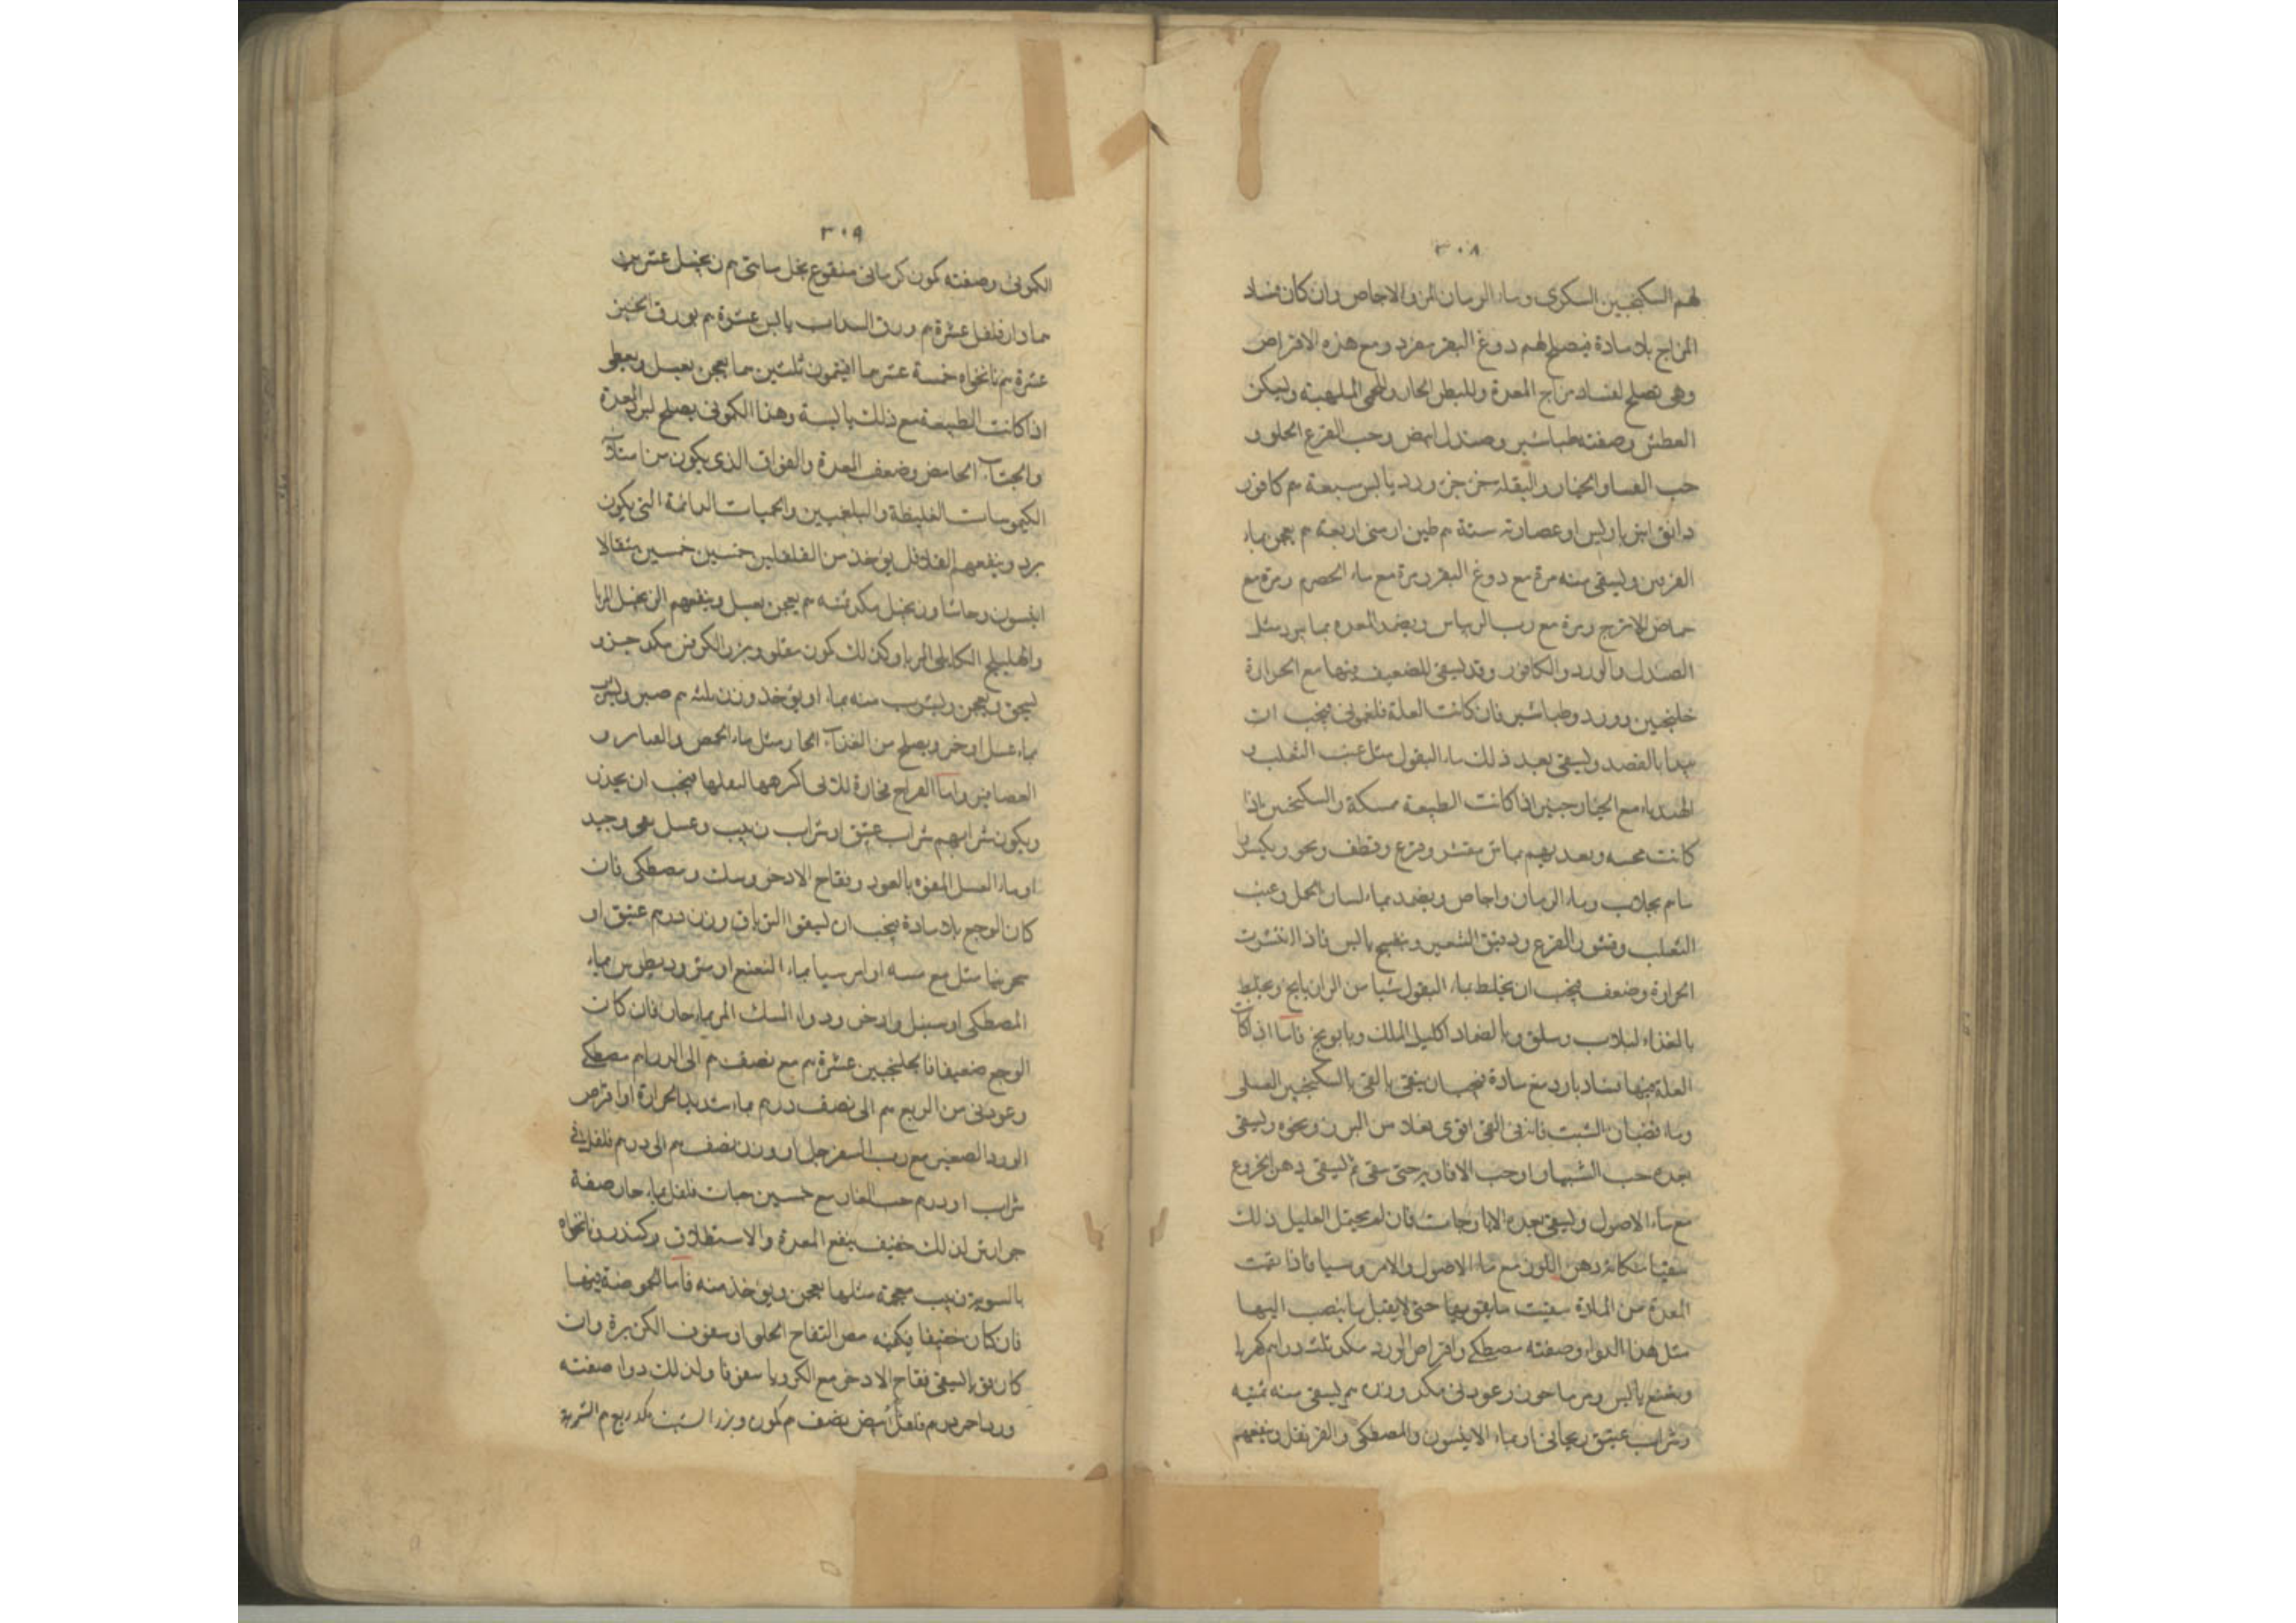 ٣٠٨
لهم السكنجبين السكرى وماء الرمان المز والاجاص وان كان فساد
المزاج بلا مادة فيصلح لهم دوغ البقر مفرد ومع هذه الاقراص
وهى تصلح لفساد مزاج المعدة وللبطن الحار والحمى الملهبة وليسكن
العطش وصفته طباشير وصندل ابيض وحب القرع الحلو و
حب القثا والخيار والبقلة جزء جزء ورد يابس سبعة م كافور
دانق انبرباريس او عصارته ستة م طين ارمنى اربعة م يعجن بماء
ويسقى منه مرة مع دوغ البقر ومرة مع ماء الحصرم ومرة مع
حماض الاترج ومرة مع رب الريباس ويضمد المعده بما يبرد مثل
الصندل والورد والكافور وقد يسقى للضعيف منها مع الحرارة
خلنجبين وورد وطباشير فان كانت العلة فلغمونى فيجب ان
يبدا بالفصد ويسقى بعد ذلك ماء البقول مثل عنب الثعلب و
الهندباء مع الخيارجنبر اذا كانت الطبيعة ممسكة والسكنجبين اذا
كانت وبعد بهم بماش مقشر وقرع وقطف
بجلاب وماء الرمان واجاص ويضمد بماء لسان الحمل وعنب
الثعلب وقشور القرع ودقيق الشعير وبنفسج يابس فاذا انتشرت
الحرارة وضعف فيجب ان يخلط بماء البقول شيا من الرازيانج ويخلط
بالغذاء لبلاب وسلق وبالضماد اكليل الملك وبابونج فاما اذا كانت
العلة فيها فساد بارد مع مادة فيجب ان ينقى بالقى بالسكنجبين العسلى
وماء قضبان الشبت فانه فى القى اقوى فعلا من البزر ونحوه ويسقى
بعده حب الشبيار او حب الافاويه حتى ينقى ثم ليسقى دهن الخروع
مع ماء الاصول ويسقى بعده الايارجات فان لم يحتمل العليل ذلك
سقيناه مكانه دهن اللوز مع ماء الاصول والامروسيا فاذا نقيت
المعدة من المادة سقيت ما يقويها حتى لا يقبل ما ينصب اليها
مثل هذا الدواء وصفته مصطكى واقراص الورد مكد ثلث دراهم كهربا
ونعنع يابس ومرماحوز وعود نى مكد وزن م يسقى منه بميبه
وشراب عتيق ريحانى او بماء الانيسون والمصطكى والقرنفل وينفعهم
٣٠٩
الكمونى وصفته كمون كرمانى منقوع بخل مايتى م زنجبيل عشرين
دارفلفل عشرة م ورق السداب يابس عشرة م بورق الخبز
عشرة م نانخواه خمسة عشر افتيمون ثلثين يعجن بعسل ويعطى
اذا كانت الطبيعة مع ذلك يابسة وهذا الكمونى يصلح لبرد المعدة
والجشاء الحامض وضعف المعدة والفواق الذى يكون من امتلاء
الكيموسات الغليظة والبلغميين والحميات الدائمة التى يكون
برد وينفعهم الفلافلى يؤخذ من الفلفلين خمسين خمسين مثقالا
انيسون وحاشا وزنجبيل مكد ثمنه م يعجن بعسل وينفعهم الزنجبيل المربا
والهليلج الكابلى المربا وكذلك كمون مقلو وبزر الكرفس مكد جزو
يسحق ويعجن ويشرب منه بماء او يؤخذ وزن ثلثه م صبر ويشرب
بماء عسل اوخر ويصلح من الغذاء الحار مثل ماء الحمص والقنابر و
العصافير واما الفراخ فحارة للذى اكرهها لبقلها فيجب ان يحذر
ويكون شرابهم شراب عتيق او شراب زبيب وعسل بعى وجيد
او ماء العسل المفوه بالعود وفقاح الاذخر وسك ومصطكى فان
كان الوجع بلا مادة فيجب ان ليسقوا الترياق وزن درهم عتيق او
سجرينا مثل مع ميبه او امروسيا بماء النعنع او مثروديطوس بماء
المصطكى او سنبل واذخر ودواء المسك المر بماء حار فان كانت
الوجع ضعيفا فالجلنجبين عشرة م مع نصف م الى الدرهم مصطكى
وعود نى من الربع م الى نصف درهم بماء شديد الحرارة او اقراص
الورد الصغير مع رب السفرجل او وزن نصف م الى درهم فلفل فى
شراب او درهم حب الغار مع خمسين حبات فلفل بماء حار صفة
جوارش لذلك خفيف ينفع المعدة والاستطلاق وكندر ونانخواه
بالسوية زبيب بعجمه مثلها يعجن ويؤخذ منه فاما الحموضة فيها
فان كان خفيفا فيكفيه مص التفاح الحلو او سفوف الكزبرة وان
كان قويا ليسقى فقاح الاذخر مع الكرويا سفوفا ولذلك دواء صفته
ورد احمر درهم فلفل ابيض نصف م كمون وبزر الشبت مكد ربع م الشربة